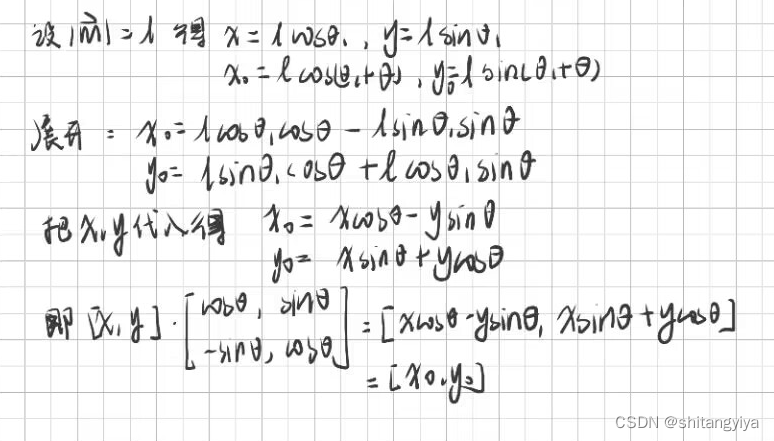 设 |m⃗| = l 得 x = l cosθ₁, y = l sinθ₁
x₀ = l cos(θ₁+θ), y₀ = l sin(θ₁+θ)
展开: x₀ = l cosθ₁cosθ - l sinθ₁sinθ
y₀ = l sinθ₁cosθ + l cosθ₁sinθ
把x,y代入得 x₀ = xcosθ - ysinθ
y₀ = xsinθ + ycosθ
即 [x, y] · [cosθ, sinθ
-sinθ, cosθ] = [xcosθ - ysinθ, xsinθ + ycosθ]
= [x₀, y₀]
CSDN @shitangyiya